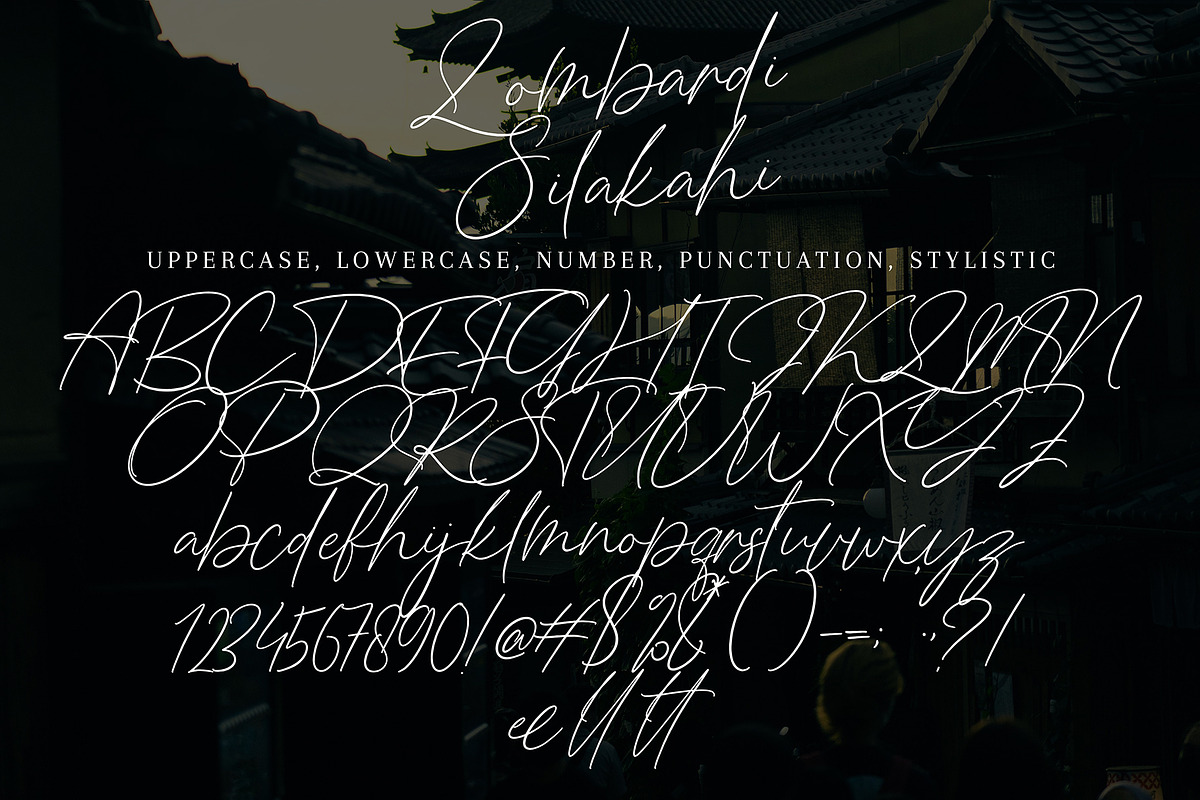 Lombardi
Silakahi
UPPERCASE, LOWERCASE, NUMBER, PUNCTUATION, STYLISTIC
ABCDEFGHIJKLMN
OPQRSTUVWXYZ
abcdefhijklmnopqrstuvwxyz
1234567890!@#$%&*()-=;:.,?/
ee ll tt